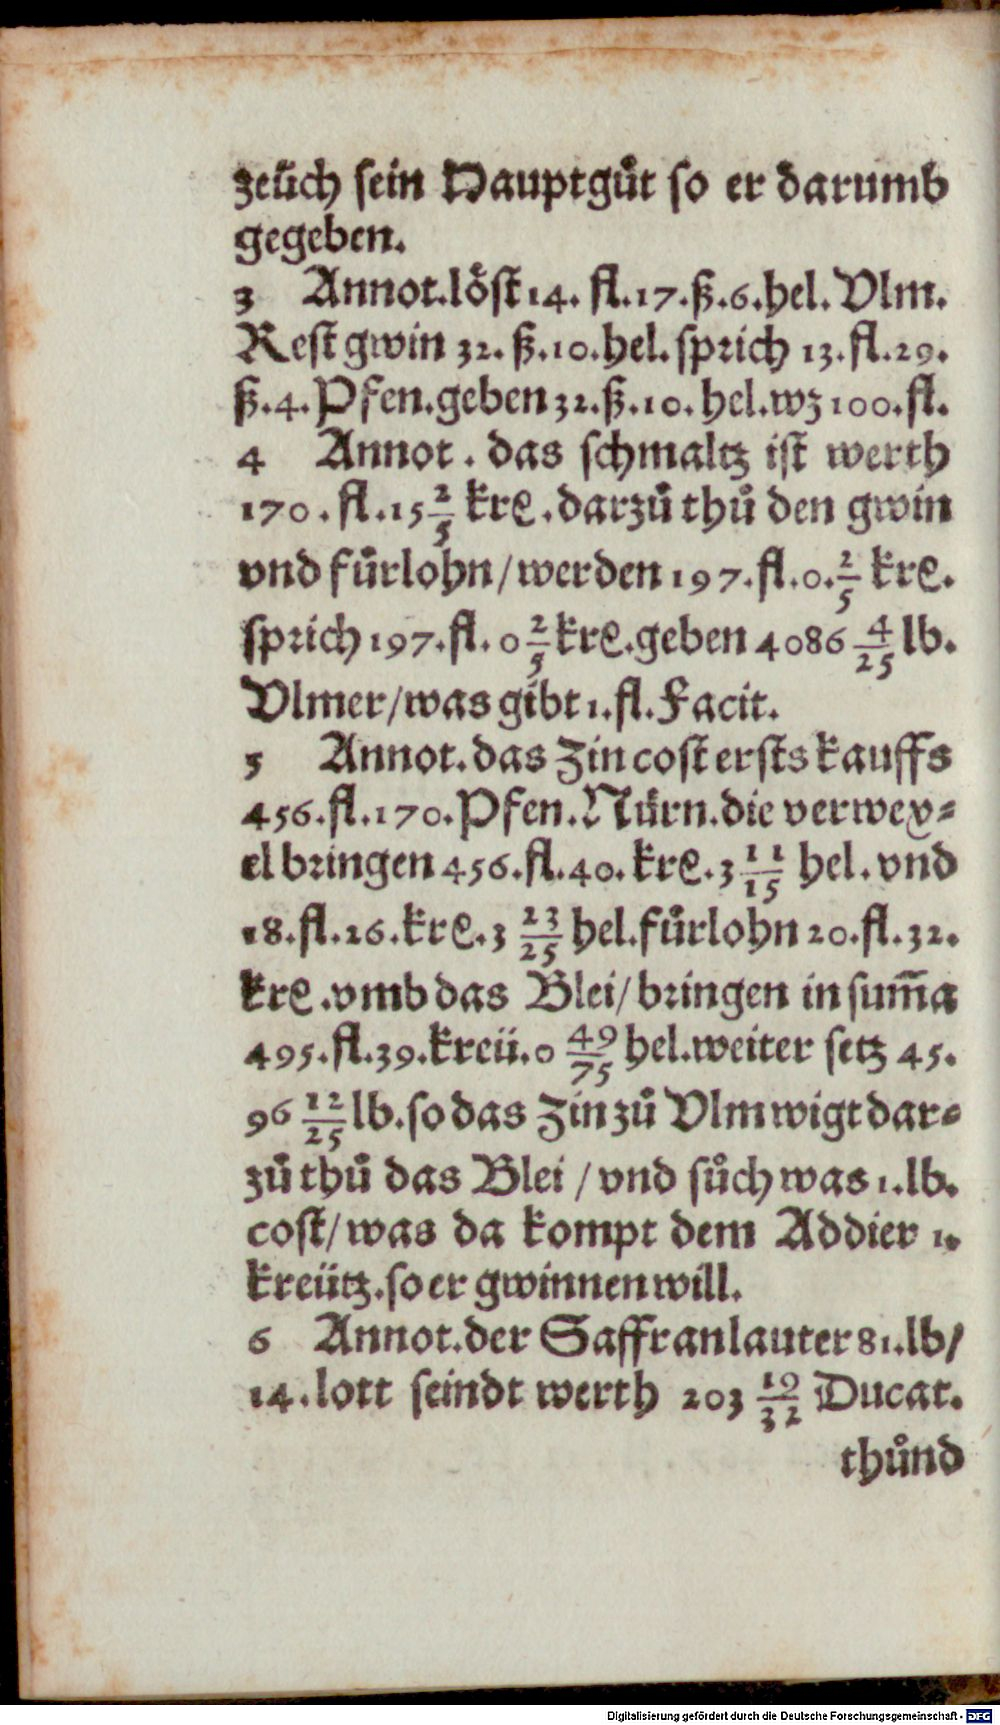 zeüch sein Hauptgůt so er darumb
gegeben.
3 Annot. löst 14. fl. 17. ß. 6. hel. Vlm.
Rest gwin 32. ß. 10. hel. sprich 13. fl. 29.
ß. 4. Pfen. geben 32. ß. 10. hel. wz 100. fl.
4 Annot. das schmaltz ist werth
170. fl. 15 2/5 krę. darzů thů den gwin
vnd fůrlohn/ werden 197. fl. 0. 2/5 krę.
sprich 197. fl. 0 2/5 krę. geben 4086 4/25 lb.
Vlmer/ was gibt 1. fl. Facit.
5 Annot. das Zin cost ersts kauffs
456. fl. 170. Pfen. Nürn. die verwex=
el bringen 456. fl. 40. krę. 3 11/15 hel. vnd
18. fl. 26. krę. 3 23/25 hel. fůrlohn 20. fl. 32.
krę. vmb das Blei/ bringen in sum̃a
495. fl. 39. kreü. 0 49/75 hel. weiter setz 45.
96 12/25 lb. so das Zin zů Vlm wigt dar=
zů thů das Blei / vnd sůch was 1. lb.
cost/ was da kompt dem Addier 1.
kreütz. so er gwinnen will.
6 Annot. der Saffran lauter 81. lb/
14. lott seindt werth 203 19/32 Ducat.
thůnd
Digitalisierung gefördert durch die Deutsche Forschungsgemeinschaft - DFG